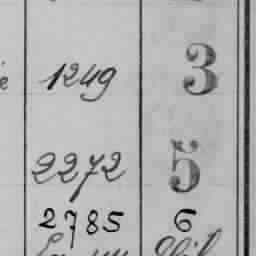 1249 3
2272 5
2785 6